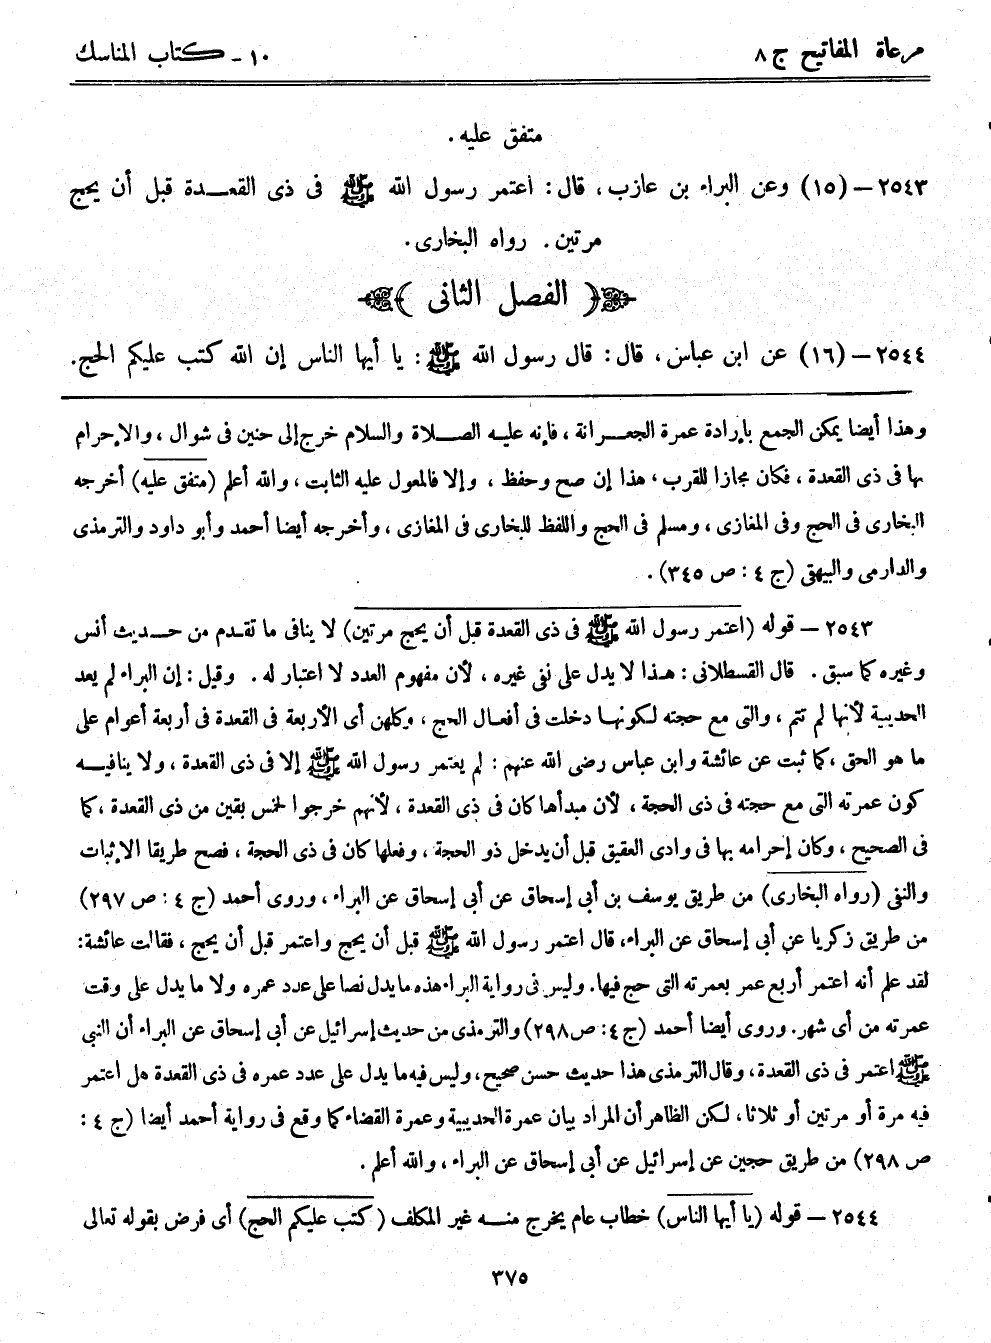 مرعاة المفاتيح ج ٨
١٠ - كتاب المناسك
متفق عليه .
٢٥٤٣ – (١٥) وعن البراء بن عازب ، قال : اعتمر رسول الله ﷺ فى ذى القعدة قبل أن يحج
مرتين . رواه البخارى .
﴿ الفصل الثانى ﴾
٢٥٤٤ – (١٦) عن ابن عباس ، قال : قال رسول الله ﷺ : يا أيها الناس إن الله كتب عليكم الحج .
وهذا أيضا يمكن الجمع بإرادة عمرة الجعرانة ، فإنه عليه الصلاة والسلام خرج إلى حنين فى شوال ، والإحرام
بها فى ذى القعدة ، فكان مجازا للقرب ، هذا إن صح وحفظ ، وإلا فالمعول عليه الثابت ، والله أعلم (متفق عليه) أخرجه
البخارى فى الحج وفى المغازى ، ومسلم فى الحج واللفظ للبخارى فى المغازى ، وأخرجه أيضا أحمد وأبو داود والترمذى
والدارمى والبيهقى (ج ٤ : ص ٣٤٥) .
٢٥٤٣ – قوله (اعتمر رسول الله ﷺ فى ذى القعدة قبل أن يحج مرتين) لا ينافى ما تقدم من حديث أنس
وغيره كما سبق . قال القسطلانى : هذا لا يدل على نفى غيره ، لأن مفهوم العدد لا اعتبار له . وقيل : إن البراء لم يعد
الحديبية لأنها لم تتم ، والتى مع حجته لكونها دخلت فى أفعال الحج ، وكلهن أى الأربعة فى القعدة فى أربعة أعوام على
ما هو الحق ، كما ثبت عن عائشة وابن عباس رضى الله عنهم : لم يعتمر رسول الله ﷺ إلا فى ذى القعدة ، ولا ينافيه
كون عمرته التى مع حجته فى ذى الحجة ، لأن مبدأها كان فى ذى القعدة ، لأنهم خرجوا لخمس بقين من ذى القعدة ، كما
فى الصحيح ، وكان إحرامه بها فى وادى العقيق قبل أن يدخل ذو الحجة ، وفعلها كان فى ذى الحجة ، فصح طريقا الإثبات
والنفى (رواه البخارى) من طريق يوسف بن أبى إسحاق عن أبى إسحاق عن البراء ، وروى أحمد (ج ٤ : ص ٢٩٧)
من طريق زكريا عن أبى إسحاق عن البراء ، قال اعتمر رسول الله ﷺ قبل أن يحج واعتمر قبل أن يحج ، فقالت عائشة :
لقد علم أنه اعتمر أربع عمر بعمرته التى حج فيها . وليس فى رواية البراء هذه ما يدل نصا على عدد عمره ولا ما يدل على وقت
عمرته من أى شهر . وروى أيضا أحمد (ج ٤ : ص ٢٩٨) والترمذى من حديث إسرائيل عن أبى إسحاق عن البراء أن النبى
ﷺ اعتمر فى ذى القعدة ، وقال الترمذى هذا حديث حسن صحيح ، وليس فيه ما يدل على عدد عمره فى ذى القعدة هل اعتمر
فيه مرة أو مرتين أو ثلاثا ، لكن الظاهر أن المراد بيان عمرة الحديبية وعمرة القضاء كما وقع فى رواية أحمد أيضا (ج ٤ :
ص ٢٩٨) من طريق حجين عن إسرائيل عن أبى إسحاق عن البراء ، والله أعلم .
٢٥٤٤ – قوله (يا أيها الناس) خطاب عام يخرج منه غير المكلف (كتب عليكم الحج) أى فرض بقوله تعالى
٣٧٥